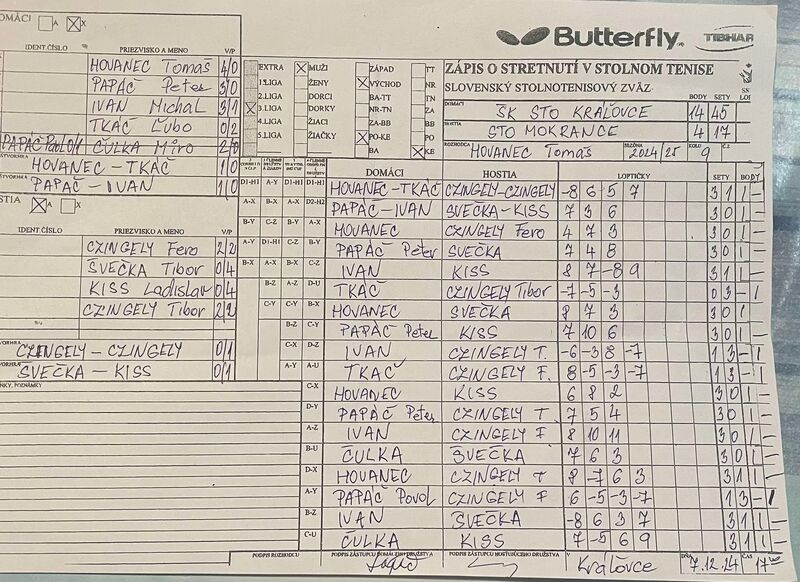 DOMÁCI A X
IDENT.ČÍSLO PRIEZVISKO A MENO V/P
HOVANEC Tomáš 4/0
PAPÁČ Peter 3/0
IVAN Michal 3/1
TKÁČ Ľubo 0/2
ČULKA Miro 2/0
HOVANEC-TKÁČ 1/0
PAPÁČ-IVAN 1/0
HOSTIA A X
IDENT.ČÍSLO PRIEZVISKO A MENO V/P
CZINGELY Fero 2/2
ŠVEČKA Tibor 0/4
KISS Ladislav 0/4
CZINGELY Tibor 2/2
CZINGELY-CZINGELY 0/1
ŠVEČKA-KISS 0/1
POZNÁMKY
EXTRA
1.LIGA
2.LIGA
3.LIGA
4.LIGA
5.LIGA
MUŽI
ŽENY
DORCI
DORKY
ŽIACI
ŽIAČKY
ZÁPAD
VÝCHOD
BA-TT
NR-TN
ZA-BB
PO-KE
BA
TT
NR
TN
ZA
BB
PO
KE
Butterfly
TIBHAR
ZÁPIS O STRETNUTÍ V STOLNOM TENISE
SLOVENSKÝ STOLNOTENISOVÝ ZVÄZ
BODY SETY LOPT
DOMÁCI ŠK STO KRÁĽOVCE 14 45
HOSTIA STO MOKRANCE 4 17
ROZHODCA HOVANEC Tomáš SEZÓNA 2024/25 KOLO 9 Č.Z
DOMÁCI HOSTIA LOPTIČKY SETY BODY
D1-H1 A-Y D1-H1 D1-H1 HOVANEC-TKÁČ CZINGELY-CZINGELY -8 6 5 7 3 1 1 -
A-X B-X A-X D2-H2 PAPÁČ-IVAN ŠVEČKA-KISS 7 3 6 3 0 1 -
B-Y C-Z B-Y A-X HOVANEC CZINGELY Fero 4 7 3 3 0 1 -
A-Y D1-H1 C-Z B-Y PAPÁČ Peter ŠVEČKA 7 4 8 3 0 1 -
B-X A-X B-X C-Z IVAN KISS 8 7 -8 9 3 1 1 -
B-Z A-Z D-U TKÁČ CZINGELY Tibor -7 -5 -3 0 3 - 1
C-Y C-Y B-X HOVANEC ŠVEČKA 8 7 3 3 0 1 -
B-Z C-Y PAPÁČ Peter KISS 7 10 6 3 0 1 -
C-X D-Z IVAN CZINGELY T. -6 -3 8 -7 1 3 - 1
A-Y A-U TKÁČ CZINGELY F. 8 -5 -3 -7 1 3 - 1
C-X HOVANEC KISS 6 8 2 3 0 1 -
D-Y PAPÁČ Peter CZINGELY T 7 5 4 3 0 1 -
A-Z IVAN CZINGELY F 8 10 11 3 0 1 -
B-U ČULKA ŠVEČKA 7 6 3 3 0 1 -
D-X HOVANEC CZINGELY T 8 -7 6 3 3 1 1 -
A-Y PAPÁČ Povol CZINGELY F 6 -5 -3 -7 1 3 - 1
B-Z IVAN ŠVEČKA -8 6 3 7 3 1 1 -
C-U ČULKA KISS 7 -5 6 9 3 1 1 -
PODPIS ROZHODCU PODPIS ZÁSTUPCU DOMÁCEHO DRUŽSTVA PODPIS ZÁSTUPCU HOSŤUJÚCEHO DRUŽSTVA V Kráľovce DŇA 7.12.24 ČAS 17